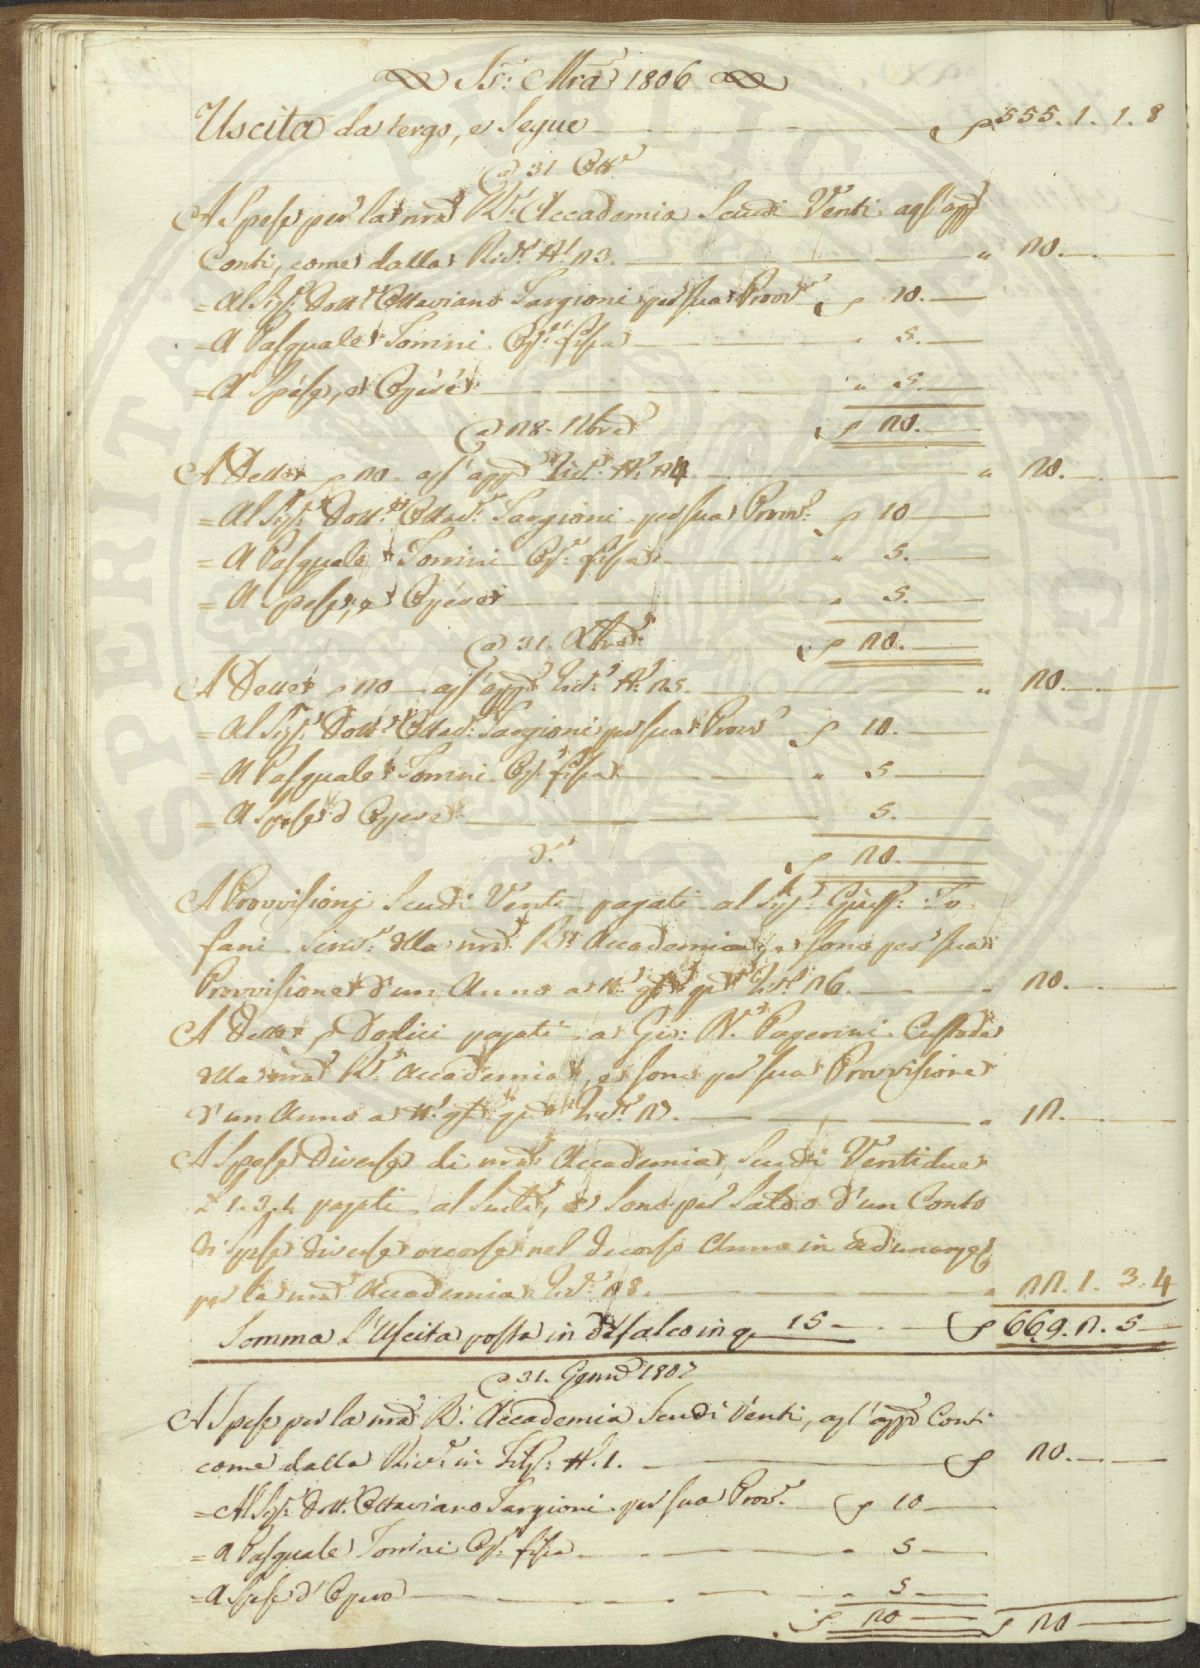 Is: Mra 1806
Uscita da tergo, e Segue 555. 1. 1. 8
a 31 Ott.e
A Spese per la nra R. Accademia Scudi Venti agl'app.
Conti, come dalla Ric. N. 23. 20.
= Al Sig. Dott. Ottaviano Targioni per sua Provv. 10.
= A Pasquale Tomini 5.
= A Spese, e Opere 5.
20.
a 28. 9bre
A Dette 20 agl'app. Ric. N. 24 20.
= Al Sig. Dott. Ottav. Targioni per sua Provv. 10
= A Pasquale Tomini 5.
= A Spese, e Opere 5.
20.
a 31 Xbre
A Dette 20 agl'app. Ric. N. 25. 20.
= Al Sig. Dott. Ottav. Targioni per sua Provv. 10.
= A Pasquale Tomini 5
= A Spese d'Opere 5.
d.o 20.
A Provvisioni Scudi Venti pagati al Sig. Gius. To
fani della nra R. Accademia, e sono per sua
Provvisione d'un Anno Ric. 26. 20.
A Dette Dodici pagati a Gio: Pagerini Custode
della nra R. Accademia, e sono per sua Provvisione
d'un Anno Ric. 27. 12.
A Spese Diverse di nra Accademia, Scudi Ventidue
1. 3. 4 pagati al Sud., e sono per Saldo d'un Conto
di spese diverse occorse nel decorso Anno in adunanze
per la nra Accademia Ric. 28. 22. 1. 3. 4
Somma l'Uscita posta in difalco in q. 15 669. 2. 5
a 31. Genn. 1807
A Spese per la nra R. Accademia Scudi Venti, agl'app. Conti
come dalla Ric. in N. 1. 20.
= Al Sig. Dott. Ottaviano Targioni per sua Prov. 10
= A Pasquale Tomini 5
= A Spese d'Opere 5
20 20